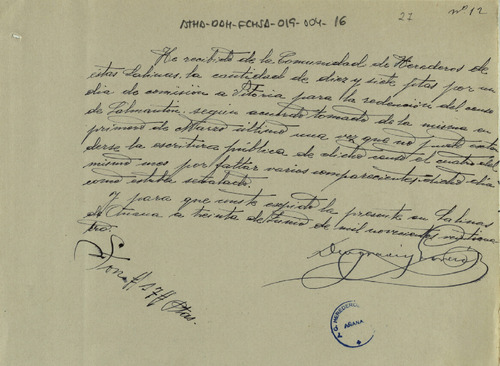 ATHA-DAH-FCHSA-019-004-16
27
nº 12
He recibido de la Comunidad de Herederos de
estas Salinas, la cantidad de diez y siete ptas por un
dia de comisión a Vitoria para la redención del censo
de Salmantón, según acuerdo tomado de la misma en
primero de Marzo último una vez que no pudo exten
derse la escritura pública de dicho censo el cuatro del
mismo mes por faltar varios comparecientes dicho dia
como estaba señalado.
Y para que conste expido la presente en Salinas
de Añana a treinta de Junio de mil novecientos veinticua
tro.
Son # 17 # Ptas.
A. G. HEREDEROS
AÑANA